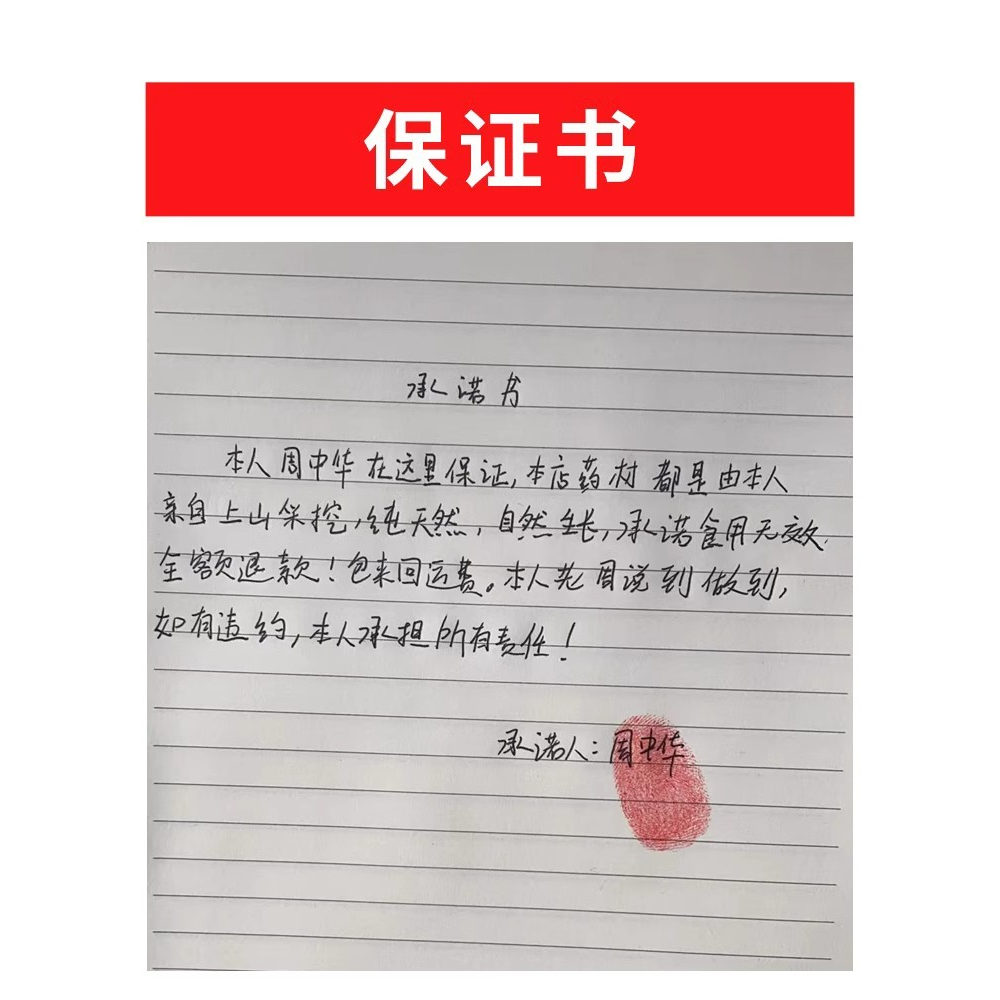 保证书
承诺书
本人周中华在这里保证,本店药材都是由本人
亲自上山采挖,纯天然,自然生长,承诺食用无效,
全额退款!包来回运费。本人老周说到做到,
如有违约,本人承担所有责任!
承诺人:周中华